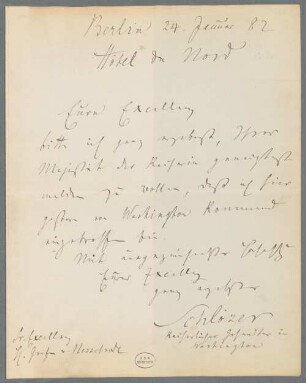 Berlin 24. Januar 82
Hôtel du Nord
Eure Excellenz
bitte ich ganz ergebenst, Ihrer
Majestät der Kaiserin geneigtest
melden zu wollen, daß ich hier
gestern von Washington kommend
eingetroffen bin.
Mit ausgezeichnetster
Eurer Excellenz
ganz ergebenster
Schlözer
Kaiserlicher Gesandter in
Washington
Sr Excellenz
H. Grafen v. Nesselrode